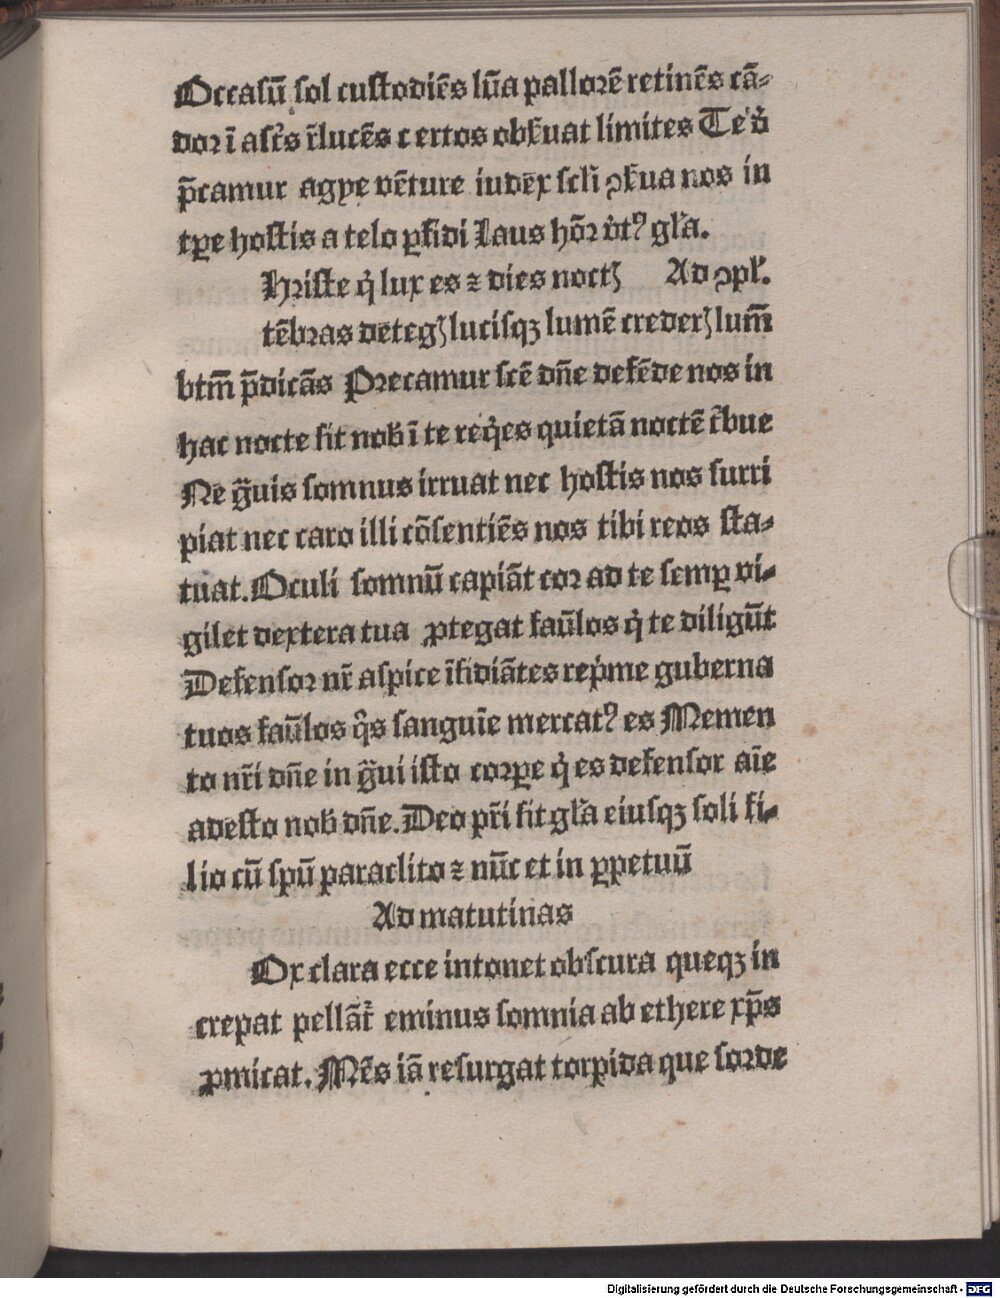 Occasū sol custodiēs lūa pallorē retinēs cā⸗
dor ī ast̄s r̄lucēs c ertos obs̄uat limites Te d̓
p̄camur agye vēture iudēx scl̄i ꝯs̄ua nos in
tꝑe hostis a telo ꝑfidi Laus hōꝛ v̓tꝰ gl̓a.
Hriste q̓ lux es ⁊ dies noctꝭ Ad ꝯpl̓.
tēbras detegꝭ lucisqꝫ lumē crederꝭ lum̄
btm̄ p̄dicās Precamur scē dn̄e defēde nos in
hac nocte sit nob̓ ī te req̓es quietā noctē t̓bue
Ne g̓uis somnus irruat nec hostis nos surri
piat nec caro illi cōsentiēs nos tibi reos sta⸗
tuat. Oculi somnū capiāt cor ad te semꝑ vi⸗
gilet dextera tua ꝓtegat faūlos q̓ te diligūt
Defensor nr̄ aspice īsidiātes rep̓me guberna
tuos faūlos q̓s sanguīe mercatꝰ es Memen
to nr̄i dn̄e in g̓ui isto corꝑe q̓ es defensor aīe
adesto nob̓ dn̄e. Deo pr̄i sit gl̓a eiusqꝫ soli fi⸗
lio cū spū paraclito ⁊ nūc et in ꝑpetuū
Ad matutinas
Ox clara ecce intonet obscura queqꝫ in
crepat pellāt̓ eminus somnia ab ethere xp̄s
ꝓmicat. Mēs iā resurgat torpida que sorde
Digitalisierung gefördert durch die Deutsche Forschungsgemeinschaft - DFG